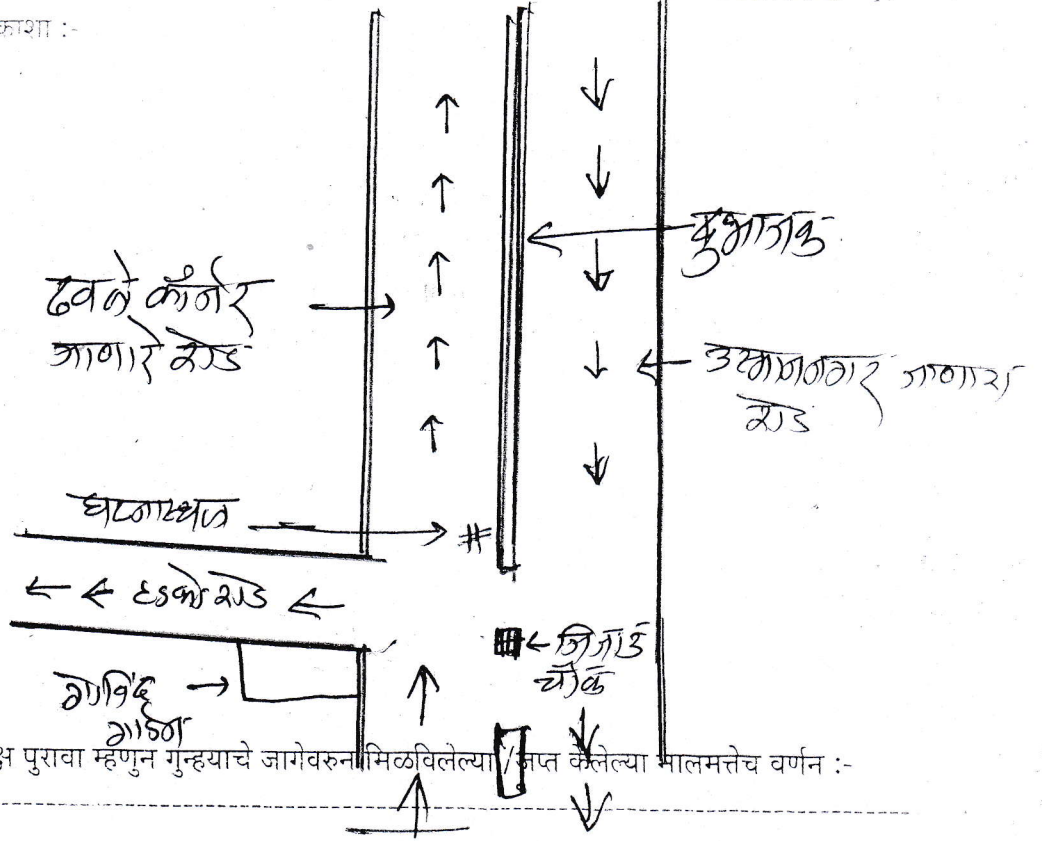 काशा :-
दुभाजक
ढवळे कॉर्नर
जाणारे रोड
उस्माननगर जाणारा
रोड
घटनास्थळ
#
हडको रोड
जिजाऊ
चौक
गोविंद
गार्डन
क्ष पुरावा म्हणुन गुन्हयाचे जागेवरुन मिळविलेल्या / जप्त केलेल्या मालमत्तेच वर्णन :-